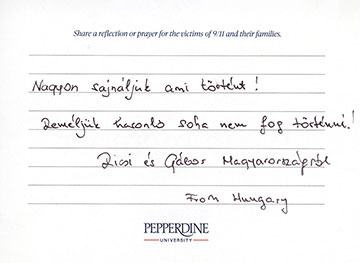 Share a reflection or prayer for the victims of 9/11 and their families.
Nagyon sajnáljuk ami történt!
Reméljük hasonló soha nem fog történni!
Ricsi és Gábor Magyarországról
From Hungary
PEPPERDINE
UNIVERSITY